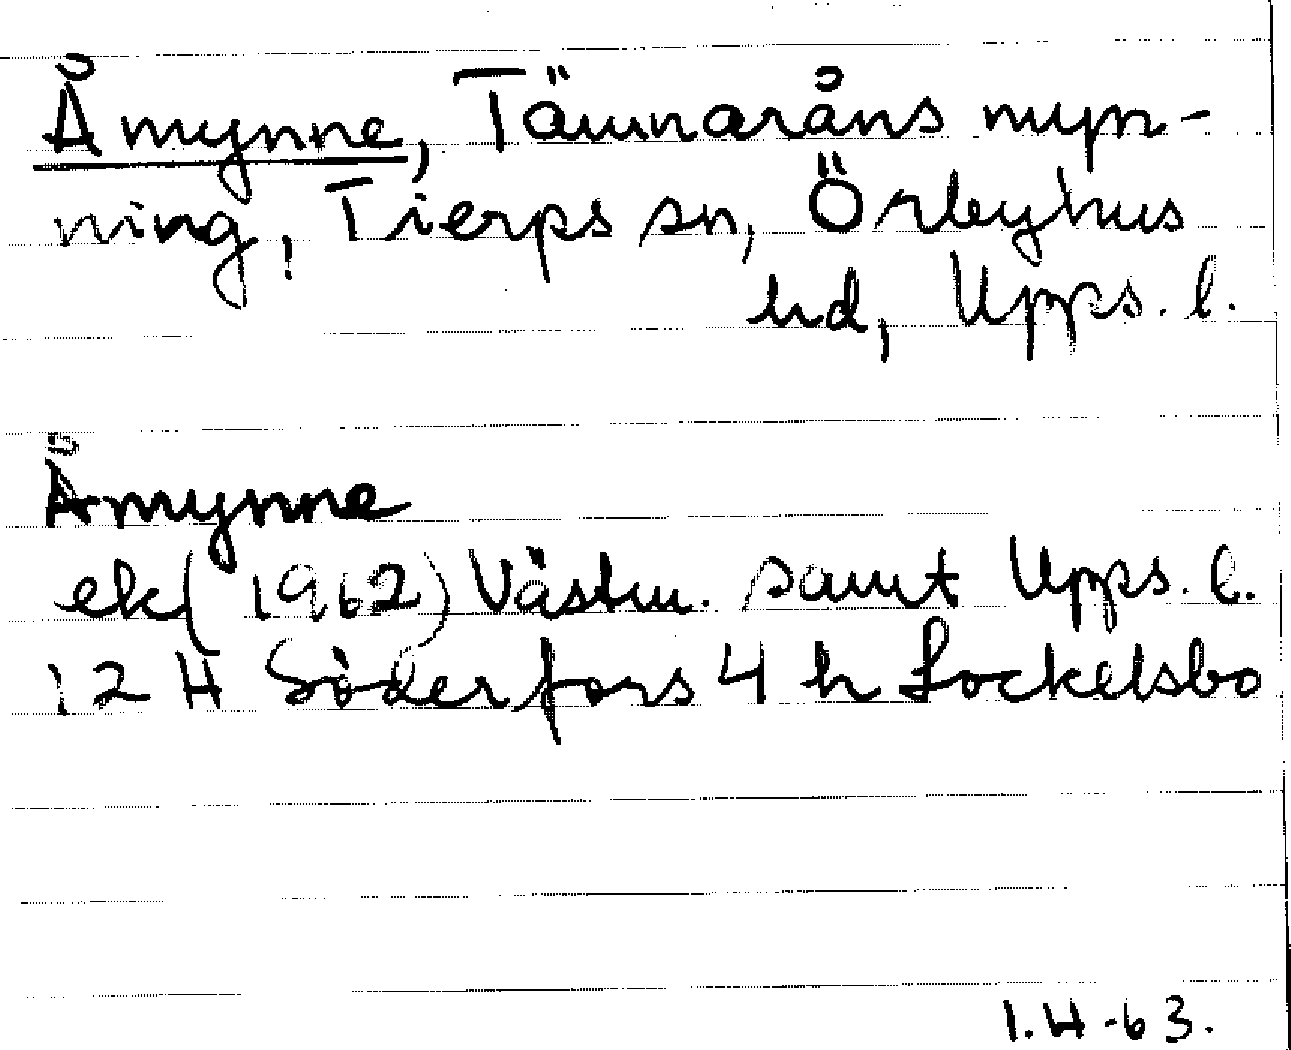 Åmynne, Tämnaråns myn-
ning, Tierps sn, Örbyhus
hd, Upps. l.
Åmynne
ek (1962) Västm. samt Upps. l.
12 H Söderfors 4 h Sockelsbo
I.H-63.